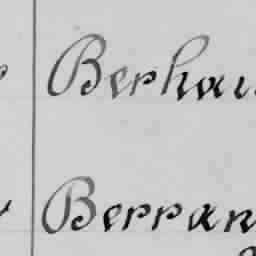 Berhau
Berran